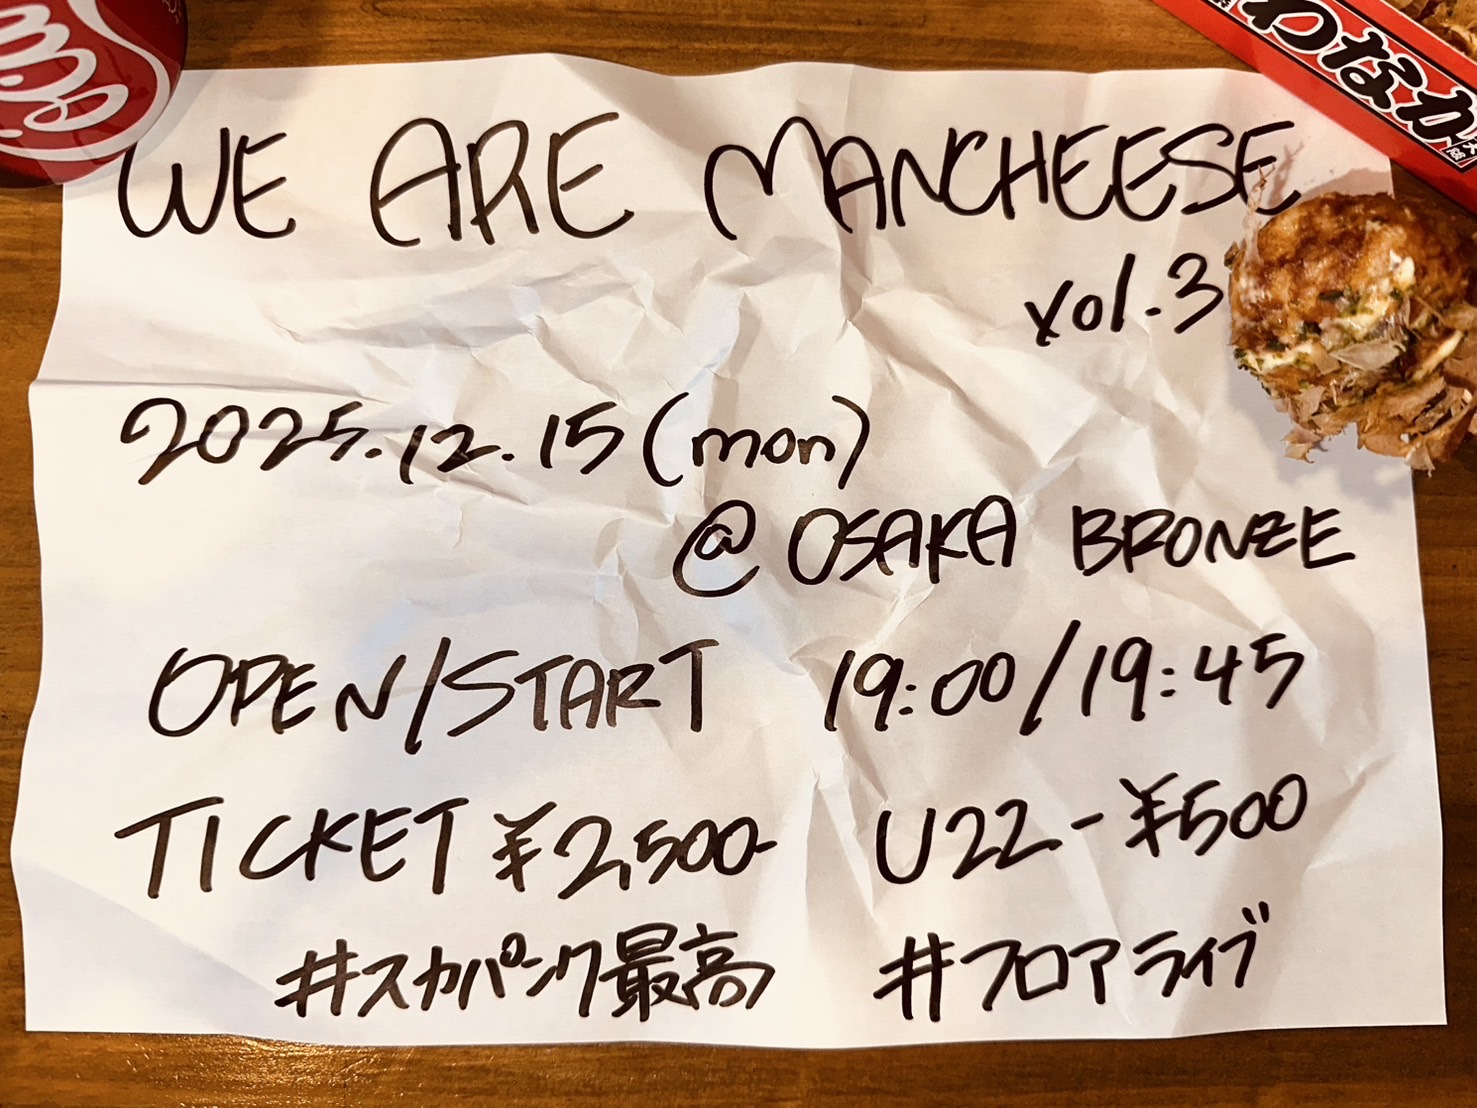 WE ARE MANCHEESE
vol.3
2025.12.15(mon)
@ OSAKA BRONZE
OPEN/START 19:00/19:45
TICKET ¥2,500- U22 -¥500
#スカパンク最高 #フロアライブ
わなか